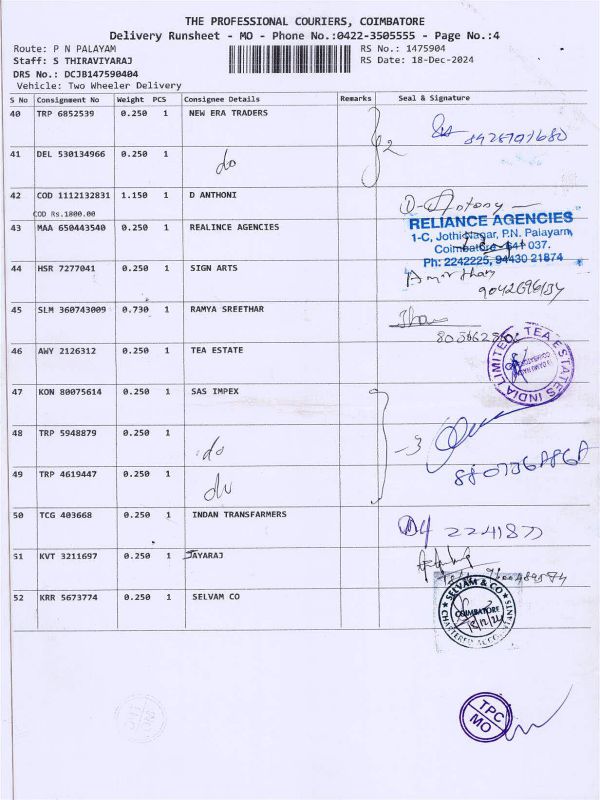 THE PROFESSIONAL COURIERS, COIMBATORE
Delivery Runsheet - MO - Phone No.:0422-3505555 - Page No.:4
Route: P N PALAYAM
RS No.: 1475904
Staff: S THIRAVIYARAJ
RS Date: 18-Dec-2024
DRS No.: DCJB147590404
Vehicle: Two Wheeler Delivery
S No Consignment No Weight PCS Consignee Details Remarks Seal & Signature
40 TRP 6852539 0.250 1 NEW ERA TRADERS
2
41 DEL 530134966 0.250 1 do
42 COD 1112132831 1.150 1 D ANTHONI
COD Rs.1800.00
D-Antony
43 MAA 650443540 0.250 1 REALINCE AGENCIES
RELIANCE AGENCIES
1-C, Jothi Nagar, P.N. Palayam,
Coimbatore - 641 037.
Ph: 2242225, 94430 21874
44 HSR 7277041 0.250 1 SIGN ARTS
45 SLM 360743009 0.730 1 RAMYA SREETHAR
46 AWY 2126312 0.250 1 TEA ESTATE
TEA ESTATES INDIA LIMITED
47 KON 80075614 0.250 1 SAS IMPEX
48 TRP 5948879 0.250 1 do
-3
49 TRP 4619447 0.250 1 do
50 TCG 403668 0.250 1 INDAN TRANSFARMERS
51 KVT 3211697 0.250 1 JAYARAJ
52 KRR 5673774 0.250 1 SELVAM CO
SELVAM & CO
COIMBATORE
CHARTERED ACCOUNTANTS
18/12/24
TPC
MO